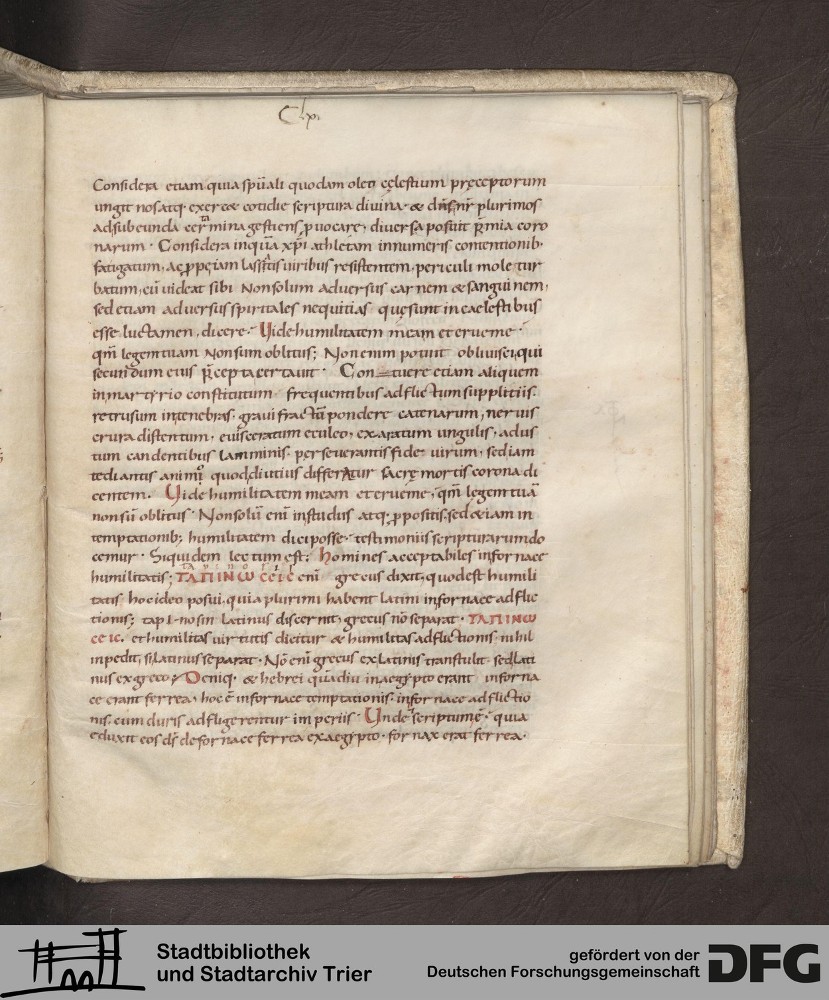 Clxi
Considera etiam quia spūali quodam oleo cęlestium pręceptorum
ungit nos atq· exercet cotidie scriptura divina· & dn̄s nr̄ plurimos
ad subeunda certamina gestiens ꝓuocare, diversa posuit p̄mia coro
narum· Considera inquā xp̄i athletam innumeris contentionib·
fatigatum, ac ꝓpe iam lassatis viribus resistentem, periculi mole tur
batum, cū videat sibi Non solum adversus carnem & sanguinem,
sed etiam adversus spiritales nequitias quę sunt in caelestibus
esse luctamen, dicere· Uide humilitatem meam et erue me·
qm̄ legem tuam Non sum oblitus; Non enim potuit oblivisci, qui
secundum eius p̄cepta certauit· Contuere etiam aliquem
in martyrio constitutum frequentibus adflictum suppliciis·
retrusum in tenebras· gravi fractū pondere catenarum, nervis
crura distentum, evisceratum eculeo, exaratum ungulis, adus
tum candentibus lamminis· perseverantis fidei virum, sed iam
tediantis animi quod diutius differatur sacrę mortis corona di
centem· Uide humilitatem meam et erue me, qm̄ legem tuā
non sū oblitus· Non solū enī in studiis atq· ꝓpositis, sed etiam in
temptationib; humilitatem dici posse· testimoniis scripturarum do
cemur· Siquidem lectum est; homines acceptabiles in fornace
humilitatis; ΤΑΠΙΝΩCΕΙC enī grecus dixit, quod est humili
tatis hoc ideo posui, quia plurimi habent latini in fornace adflic
tionis; tapinosin latinus discernit, grecus nō separat· ΤΑΠΙΝΩ
CΕΙC· et humilitas virtutis dicitur & humilitas adflictionis· nihil
inpedit, si latinus separat· Nō enī grecus ex latinis transtulit· sed lati
nus ex greco; Deniq· & hebrei quādiu in aegypto erant in forna
ce erant ferrea, hoc ē in fornace temptationis· in fornace adflictio
nis· cum duris adfligerentur imperiis· Unde scriptum ē· quia
eduxit eos ds̄ de fornace ferrea ex aegypto· fornax erat ferrea·
Stadtbibliothek
und Stadtarchiv Trier
gefördert von der
Deutschen Forschungsgemeinschaft
DFG